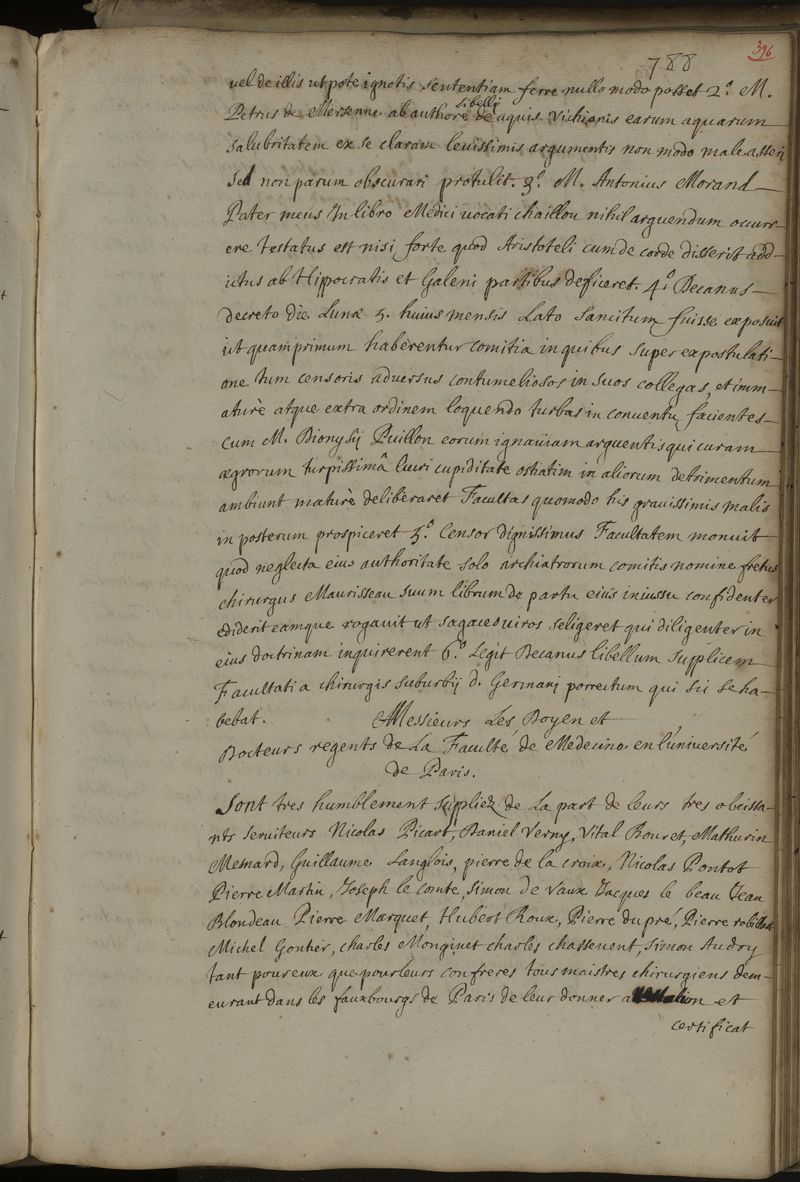 396
788
vel de illis utpote ignotis sententiam ferre nullo modo posset 2.º M.
Petrus de Mersenne ab authore libelli de aquis Vichienis earum aquarum
salubritatem ex se claram levissimis argumentis non modo male asseri
sed non parum obscurari protulit. 3.º M. Antonius Morand
Pater meus In libro Medici vocati chaillou nihil arguendum occurr-
ere testatus est nisi forte quod Aristoteli cum de corde disserit add-
ictus ab Hippocratis et Galeni partibus deficeret. 4.º Decanus
decreto die Lunæ 5. huius mensis Lato Sancitum fuisse exposuit
ut quamprimum haberentur comitia in quibus super expostulati-
one tum censoris adversus contumeliosos in suos collegas, et imm-
aturè atque extra ordinem loquendo turbas in conventu facientes
cum M. Dionysij Puillon eorum ignaviam arguentis qui curam
ægrorum turpissimâ lucri cupiditate ostiatim in aliorum detrimentum
ambiunt maturè deliberaret Facultas quomodo his gravissimis malis
in posterum prospiceret 5.º Censor dignissimus Facultatem monuit
quod neglecta eius authoritate solo archiatrorum comitis nomine fretus
chirurgus Maurisseau suum librum de partu eius iniussu confidenter
ediderit eamque rogavit ut sagaces viros seligeret qui diligenter in
eius doctrinam inquirerent 6.º Legit Decanus libellum supplicem
Facultati a chirurgis suburbij d. Germani porrectum qui sic seha-
bebat. Messieurs Les Doyen et
Docteurs regents de La Faculté de Medecine en l'université
de Paris.
Sont tres humblement suppliez de La part de leurs tres obeissa-
nts serviteurs Nicolas Picart, Daniel Verny, Vital Bouret, Mathurin
Mesnard, Guillaume Langlois, pierre de la croix, Nicolas Pontot
Pierre Martin, Joseph le Comte, Simon de Vaux Jacques le beau Jean
Blondeau Pierre Marquet, Hubert Roux, Pierre du pré, Pierre robillard
Michel Gontier, charles Monginet charles chassenent, Simon Audry
tant pour eux que pour leurs confreres tous maistres chirurgiens dem-
eurant dans les fauxbourgs de Paris de leur donner et
certificat